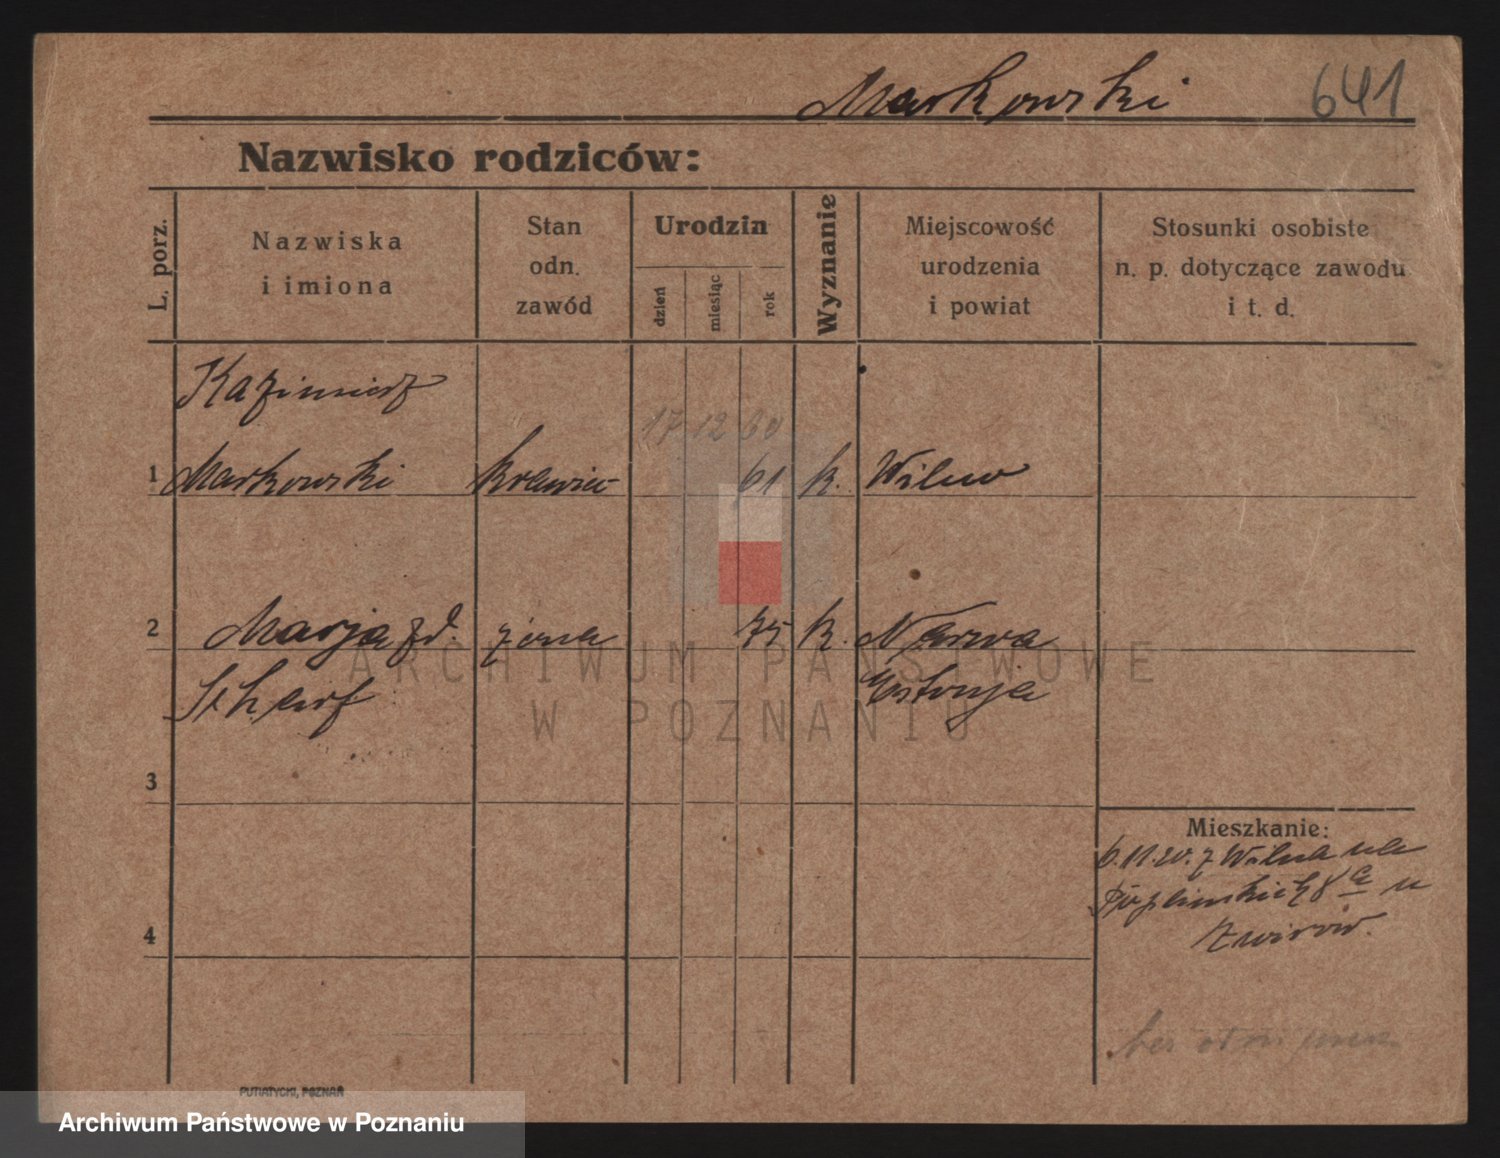 Markowski 641
Nazwisko rodziców:
L. porz.
Nazwiska
i imiona
Stan
odn.
zawód
Urodzin
dzień
miesiąc
rok
Wyznanie
Miejscowość
urodzenia
i powiat
Stosunki osobiste
n. p. dotyczące zawodu
i t. d.
Kazimierz
17 12 60
1 Markowski krawiec 61 k. Wilno
2 Marja zd. żona 75 k. Narwa
Scharf Estonja
ARCHIWUM PAŃSTWOWE
W POZNANIU
3
Mieszkanie:
6.11.20. z Wilna ula
8a u
4
bez
PUTIATYCKI, POZNAŃ
Archiwum Państwowe w Poznaniu